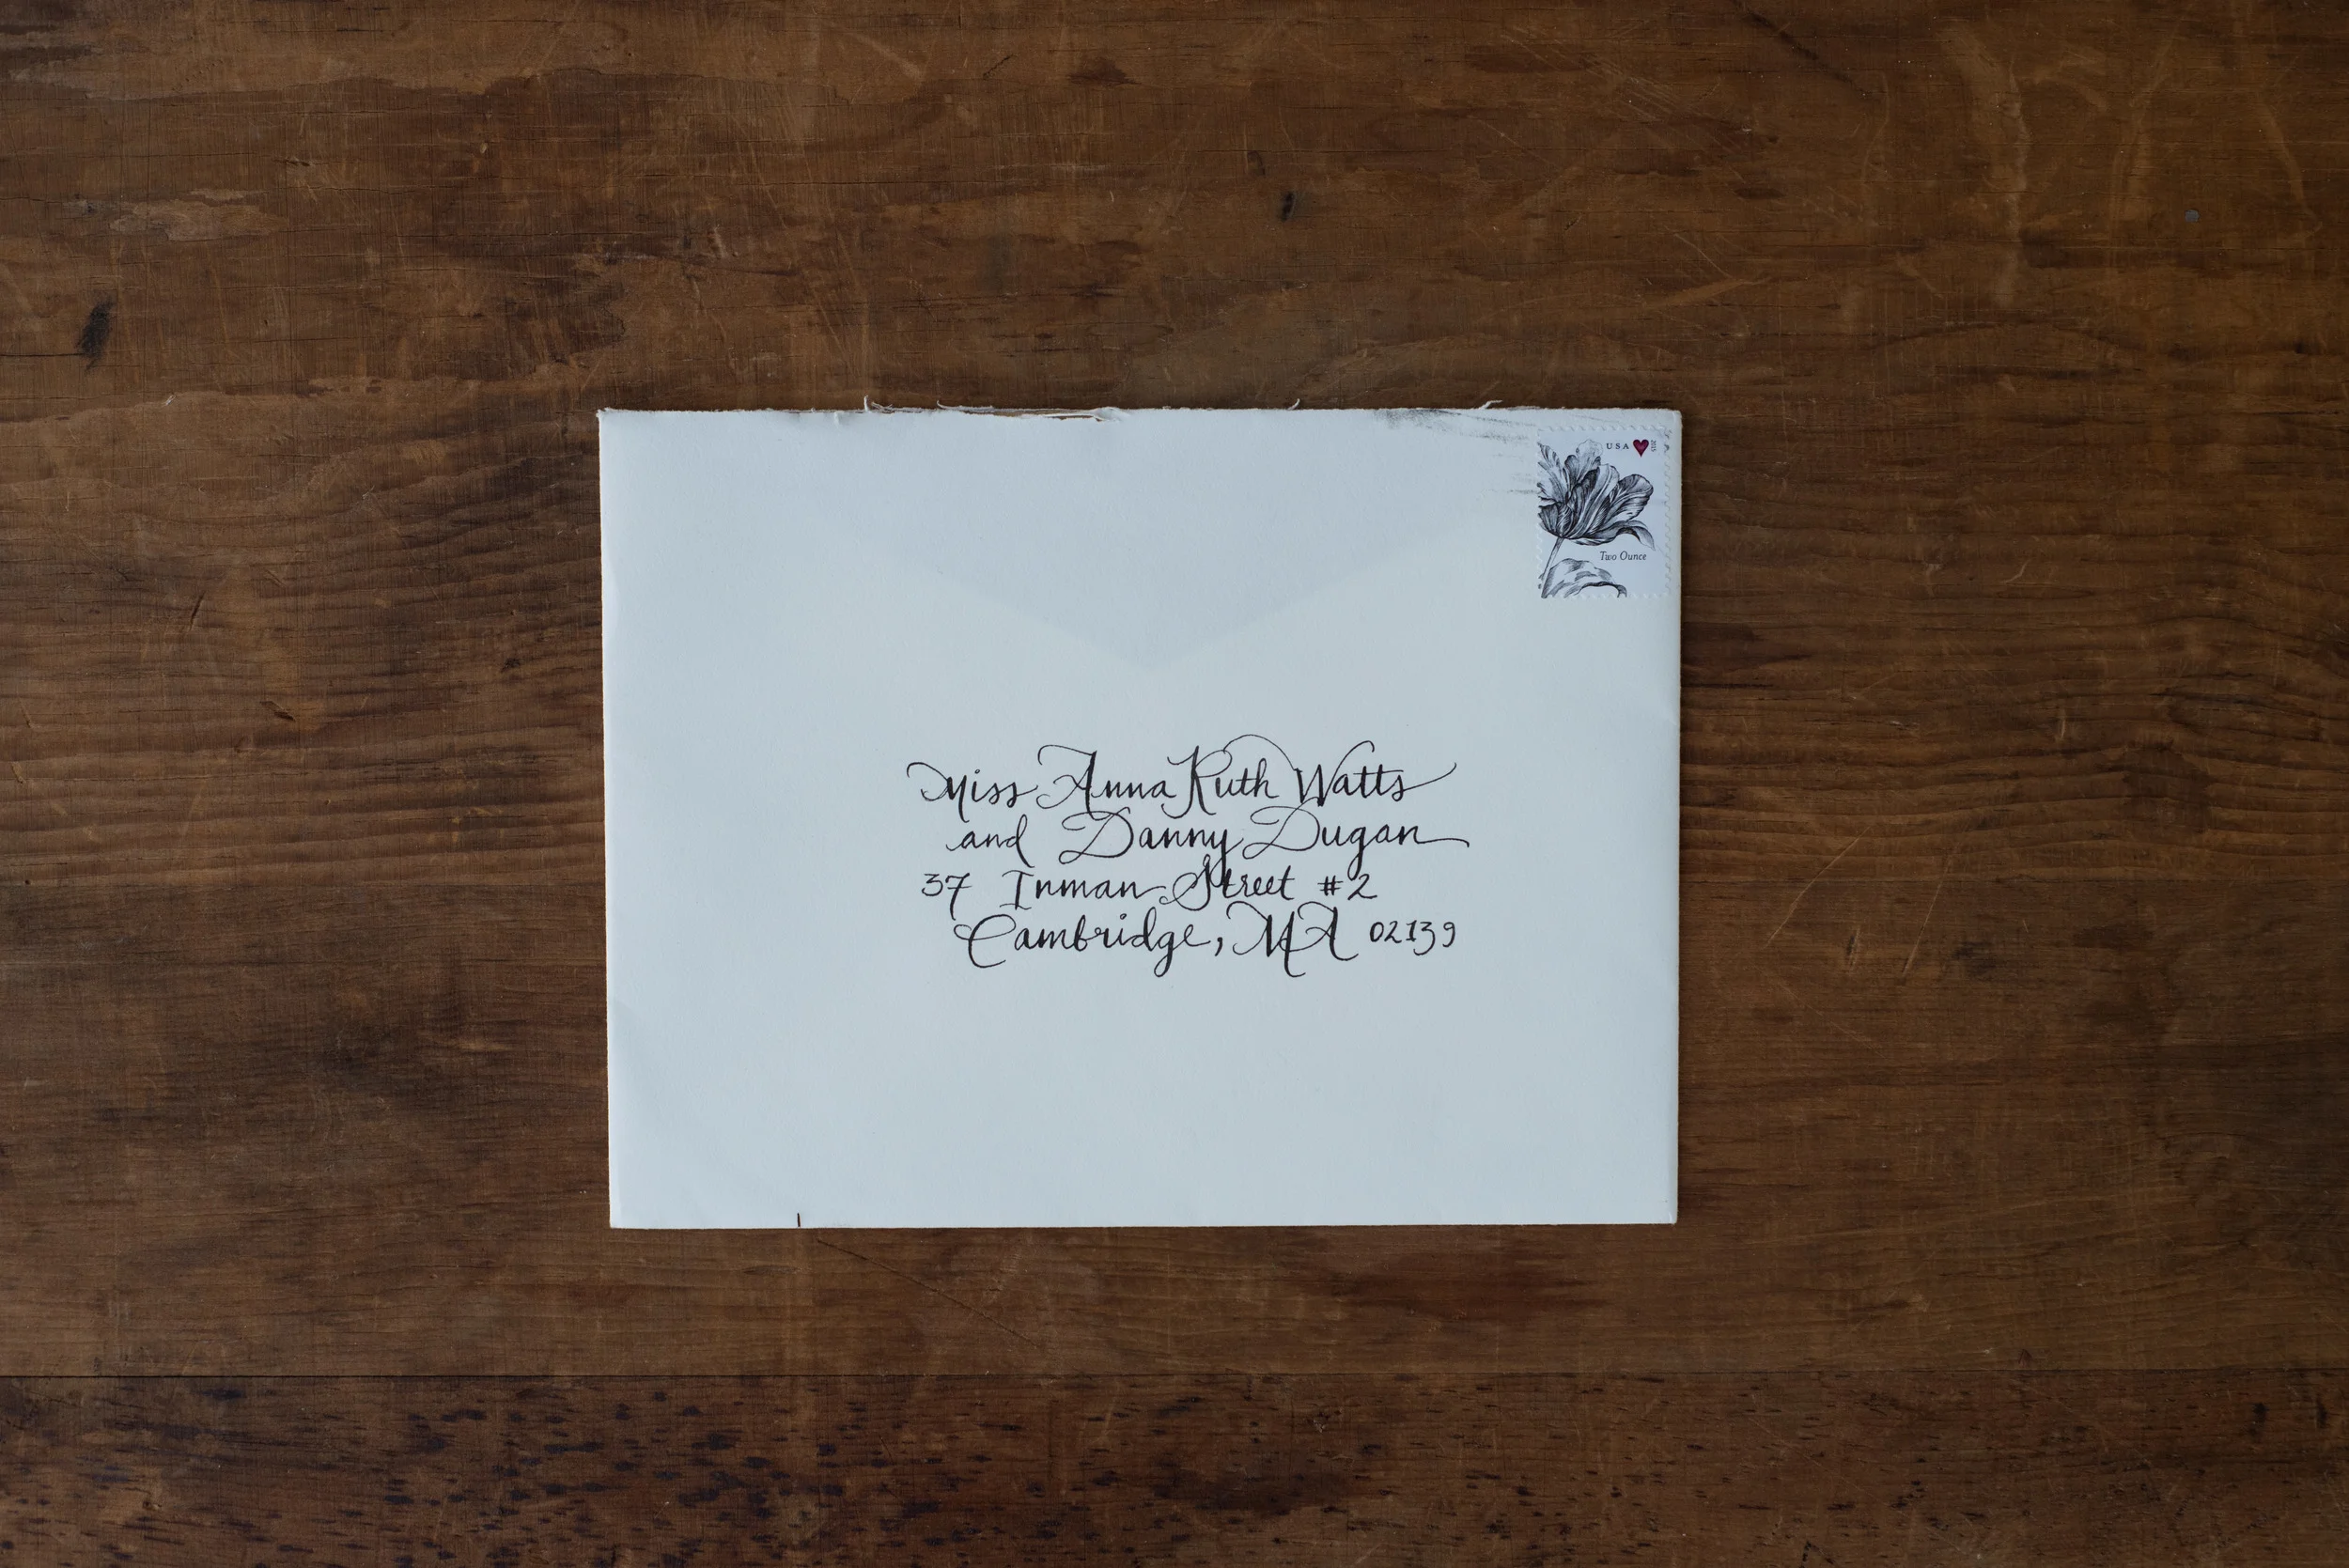 USA
Two Ounce
Miss Anna Ruth Watts
and Danny Dugan
37 Inman Street #2
Cambridge, MA 02139